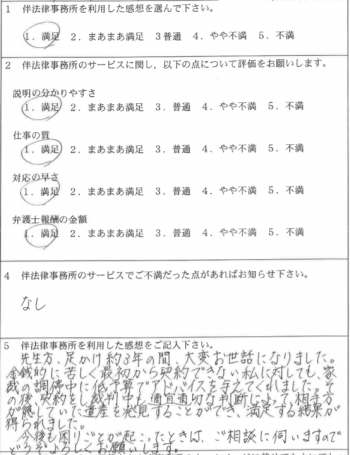 1 伴法律事務所を利用した感想を選んで下さい。
1. 満足 2. まあまあ満足 3 普通 4. やや不満 5. 不満
2 伴法律事務所のサービスに関し、以下の点について評価をお願いします。
説明の分かりやすさ
1. 満足 2. まあまあ満足 3. 普通 4. やや不満 5. 不満
仕事の質
1. 満足 2. まあまあ満足 3. 普通 4. やや不満 5. 不満
対応の早さ
1. 満足 2. まあまあ満足 3. 普通 4. やや不満 5. 不満
弁護士報酬の金額
1. 満足 2. まあまあ満足 3. 普通 4. やや不満 5. 不満
4 伴法律事務所のサービスでご不満だった点があればお知らせ下さい。
なし
5 伴法律事務所を利用した感想をご記入下さい。
先生方、足かけ約3年の間、大変お世話になりました。
金銭的に苦しく最初から契約できない私に対しても、家
裁の調停中に低予算でアドバイスを与えてくれました。そ
の後、契約をし裁判中も適宜適切な判断によって相手方
が隠していた遺産を発見することができ、満足する結果が
得られました。
今後も困りごとが起こったときは、ご相談に伺いますので
どうぞよろしくお願いします。